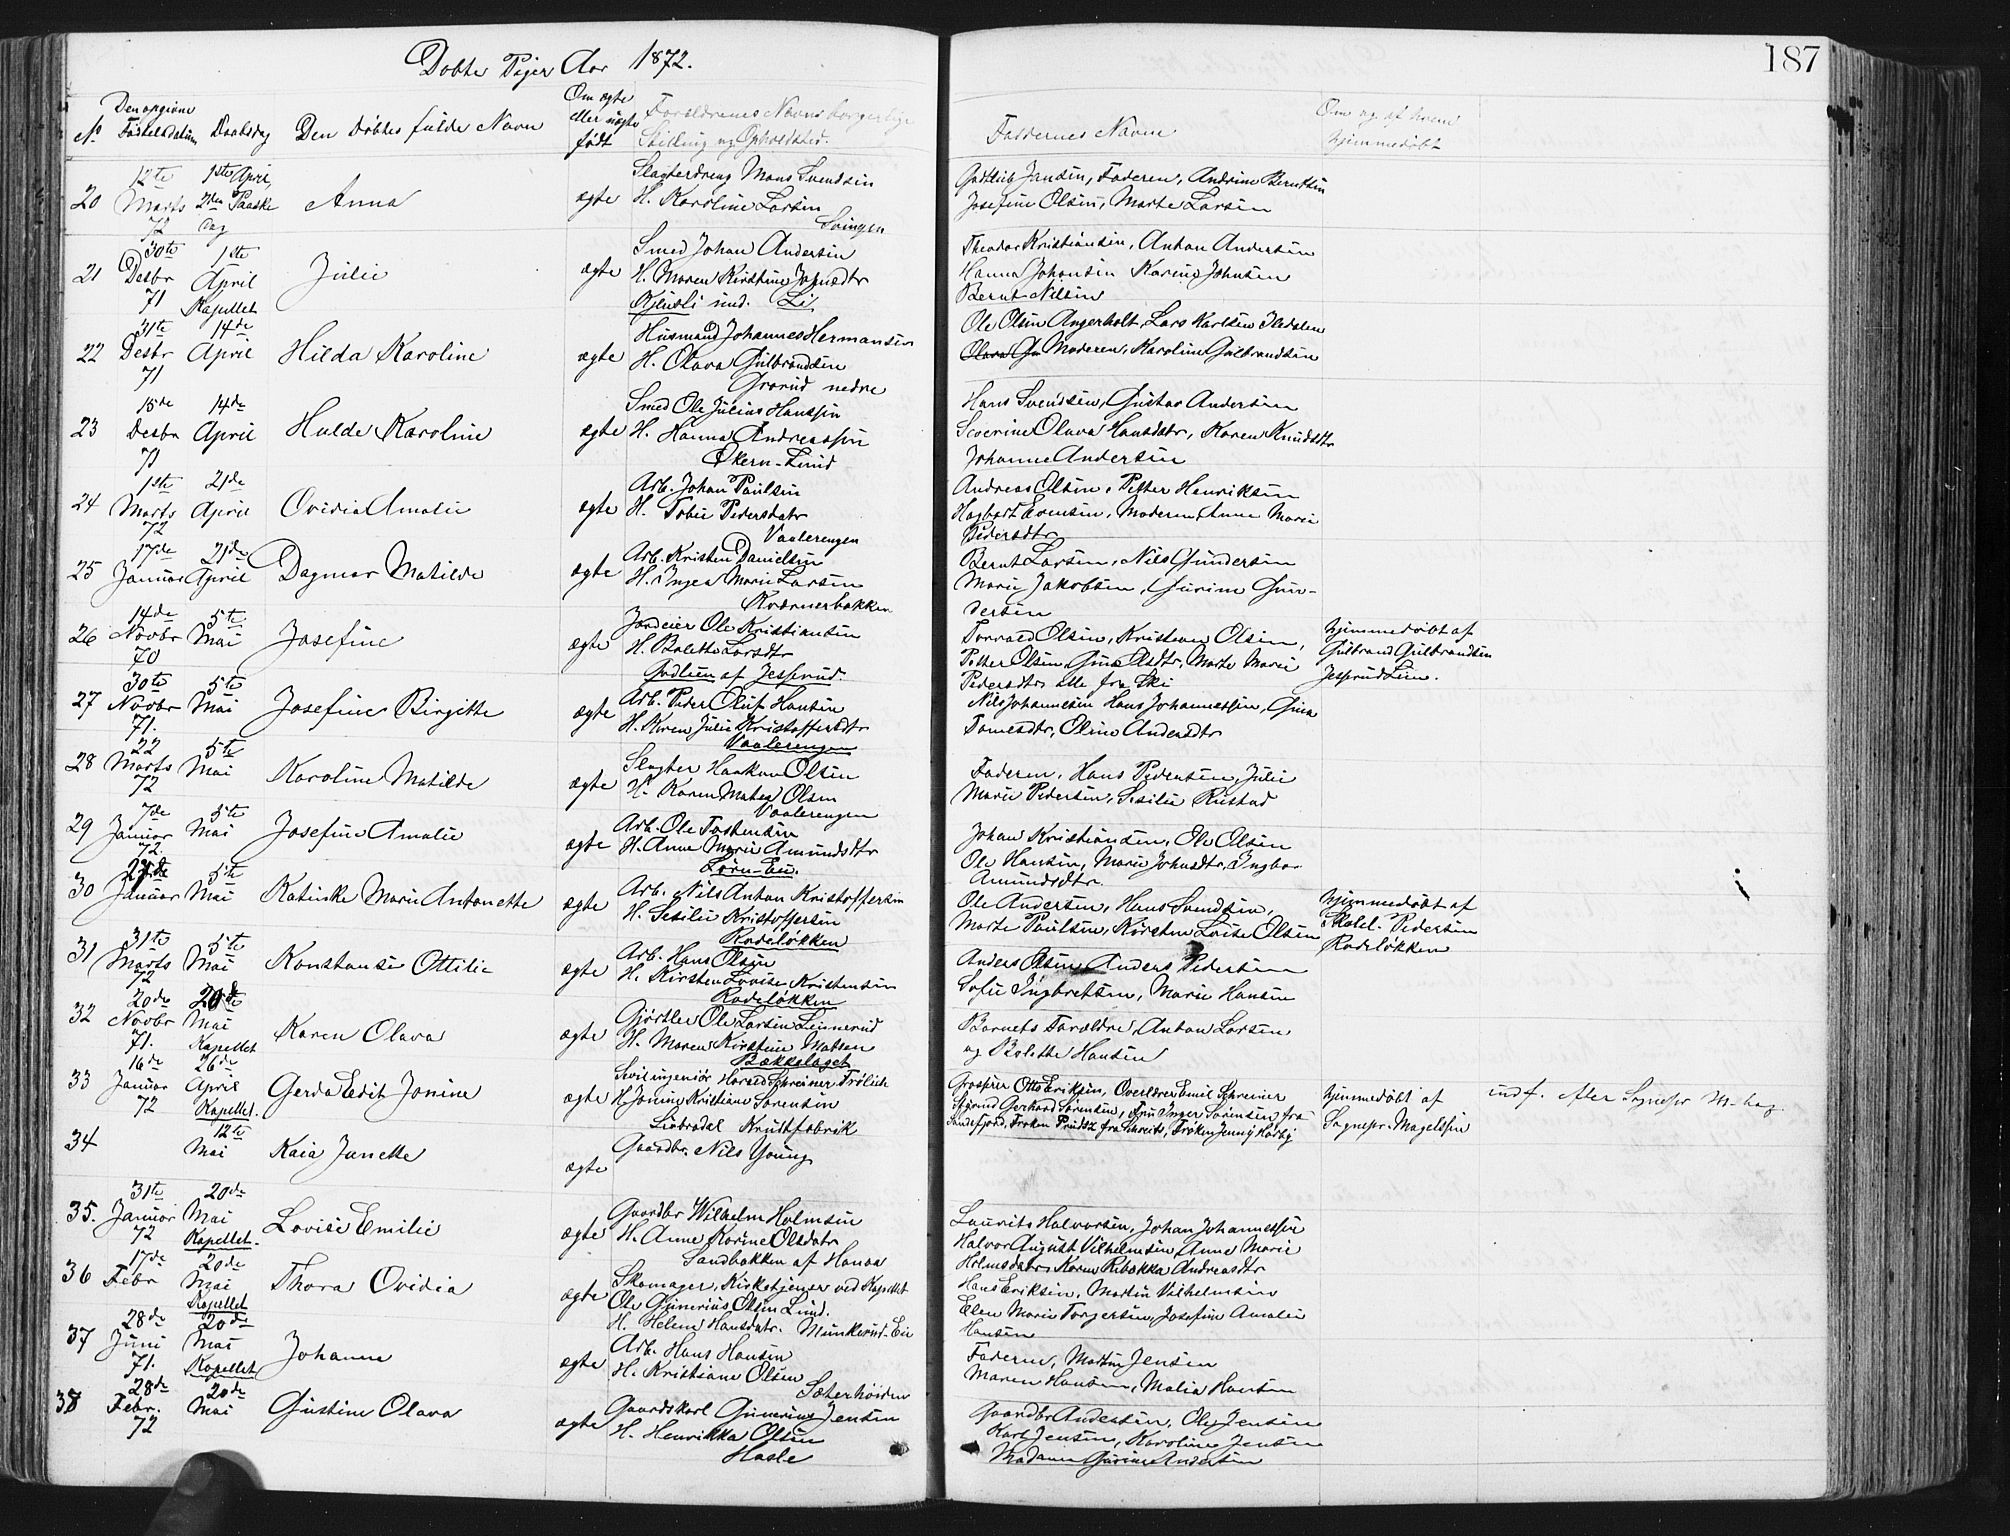 Døbte Piger Aar 1872.
187
No
Den opgivne Fødselsdatum
Daabsdag
Den Døbtes fulde Navn
Om ægte eller uægte født
Forældrenes Navne borgerlige Stilling og Opholdsted.
Faddernes Navne
Om og af hvem hjemmedøbt
20 12te Marts 72 1ste April 2den Paaske Dag Anna ægte Slagterdreng Mons Svendsen
H. Karoline Larsen
Svingen
Gottlieb Jansen, Faderen, Andrine Berntsen
Josefine Olsen, Marte Larsen
21 30te Desbr 71 1ste April Kapellet Julie ægte Smed Johan Andersen
H. Maren Kirstine Johnsdtr
Theodor Kristiansen, Anton Andersen
Hanna Johansen Karine Johnsen
Bernt Nilsen
22 31te Desbr 71 14de April Hilda Karoline ægte Husmand Johannes Hermansen
H. Olava Gulbrandsen
Grorud nedre
Ole Olsen Angerholt, Lars Karlsen
Moderen, Karoline Gulbrandsen
23 15de Desbr 71 14de April Hulde Karoline ægte Smed Ole Julius Hanssen
H. Hanna Andreassen
Økern-Lund
Hans Svendsen, Gustav Andersen
Severine Olava Hansdatr, Karen Knudsdtr
Johanne Andersen
24 1ste Marts 72 21de April Ovidia Amalie ægte Arb. Johan Paulsen
H. Tobie Pedersdatr
Vaalerengen
Andreas Olsen, Petter Henriksen
Hagbart Evensen, Moderen, Anne Marie
Pedersdtr
25 17de Januar 21de April Dagmar Matilde ægte Arb. Kristen Danielsen
H. Inger Marie Larsen
Kværnerbakken
Bernt Larsen, Nils Gundersen
Marie Jakobsen, Gurine Gun-
dersen
26 14de Novbr 70 5te Mai Josefine ægte Jordeier Ole Kristiansen
H. Bolette Larsdtr
Godlien af Jessrud
Torvald Olsen, Kristian Olsen,
Petter Olsen, Gina Olsdtr, Marte Marie
Pedersdtr alle fra Ski
hjemmedøbt af
Gulbrand Gulbrandsen
Jessrud Lien.
27 30te Novbr 71. 5te Mai Josefine Birgitte ægte Arb. Peder Oluf Hansen
H. Karen Julie Kristoffersdtr
Vaalerengen
Nils Johannesen Hans Johannessen, Gina
Tomesdtr, Oline Andersdtr
28 22 Marts 72 5te Mai Karoline Matilde ægte Slagter Haakon Olsen
H. Karen Mathea Olsen
Vaalerengen
Faderen, Hans Pedersen, Julie
Marie Pedersen, Sesilie Rustad
29 7de Januar 72. 5te Mai Josefine Amalie ægte Arb. Ole Tostensen
H. Anne Marie Amundsdtr
Lørn-Eie.
Johan Kristiansen, Ole Olsen
Ole Hansen, Marie Johnsdtr, Ingbor
Amundsdtr
30 Januar 5te Mai Katinke Marie Antonette ægte Arb. Nils Anton Kristoffersen
H. Sesilie Kristoffersen
Rodeløkken
Ole Andersen, Hans Svendsen,
Marte Paulsen, Kirsten Lovise Olsen
hjemmedøbt af
Pedersen
Rodeløkken
31 31te Marts 72 5te Mai Konstanse Ottilie ægte Arb. Hans Olsen
H. Kirsten Lovise Kristensen
Rodeløkken
Anders Olsen, Anders Pedersen
Sofie Ingbretsen, Marie Hansen
32 20de Novbr 71. 20de Mai Kapellet Karen Olava ægte Gjørtler Ole Larsen Leinerud
H. Maren Kirstine Matsen
Bækkelaget
Barnets Forældre, Anton Larsen
og Bolette Hansen
33 16de Januar 72 26de April Kapellet. Gerda Edit Jonine ægte Sivilingeniør Harald Schreiner Frølich
H Jonine Kristiane Sørensen
Liabrodal Krudtfabrik
Grosserer Otto Eriksen, Overlærer Emil Schreiner
Sigurd Gerhard Sørensen, Fru Inger Sørensen fra
Sandefjord, Frøken Pridtz Frøken Jenny Hasby
hjemmedøbt af
Sognepr. Magelssen
indf. efter Sognepr M-
34 12te Mai Kaia Janette ægte Gaardbr. Nils Young
35. 31te Januar 72 20de Mai Kapellet. Lovise Emilie ægte Gaardbr Wilhelm Holmsen
H. Anne Karine Olsdatr
Sandbakken af Hanaa
Laurits Halvorsen, Johan Johannessen
Halvor August Vilhelmsen Anne Marie
Holmsdatr, Karen Rebekka Andreasdtr
36 17de Febr 20de Mai Kapellet Thora Ovidia ægte Skomager, Kirketjener ved Kapellet
Ole Gunerius Olsen Lund.
H. Helene Hansdatr. Munkerud-Eie
Hans Eriksen, Martin Vilhelmsen
Elen Marie Torgersen, Josefine Amalie
Hansen
37 28de Juni 71. 20de Mai Kapellet Johanne ægte Arb. Hans Hansen
H. Kristiane Olsen
Sæterhøiden
Faderen, Martin Jensen
Maren Hansen, Malia Hansen
38 28de Febr. 72 20de Mai Gustine Olava ægte Gaardskarl Gunerius Jensen
H. Henrikka Olsen
Hasle
Gaardbr Andersen, Ole Jensen
Karl Jensen, Karoline Jensen
Madame Gurine Andersen